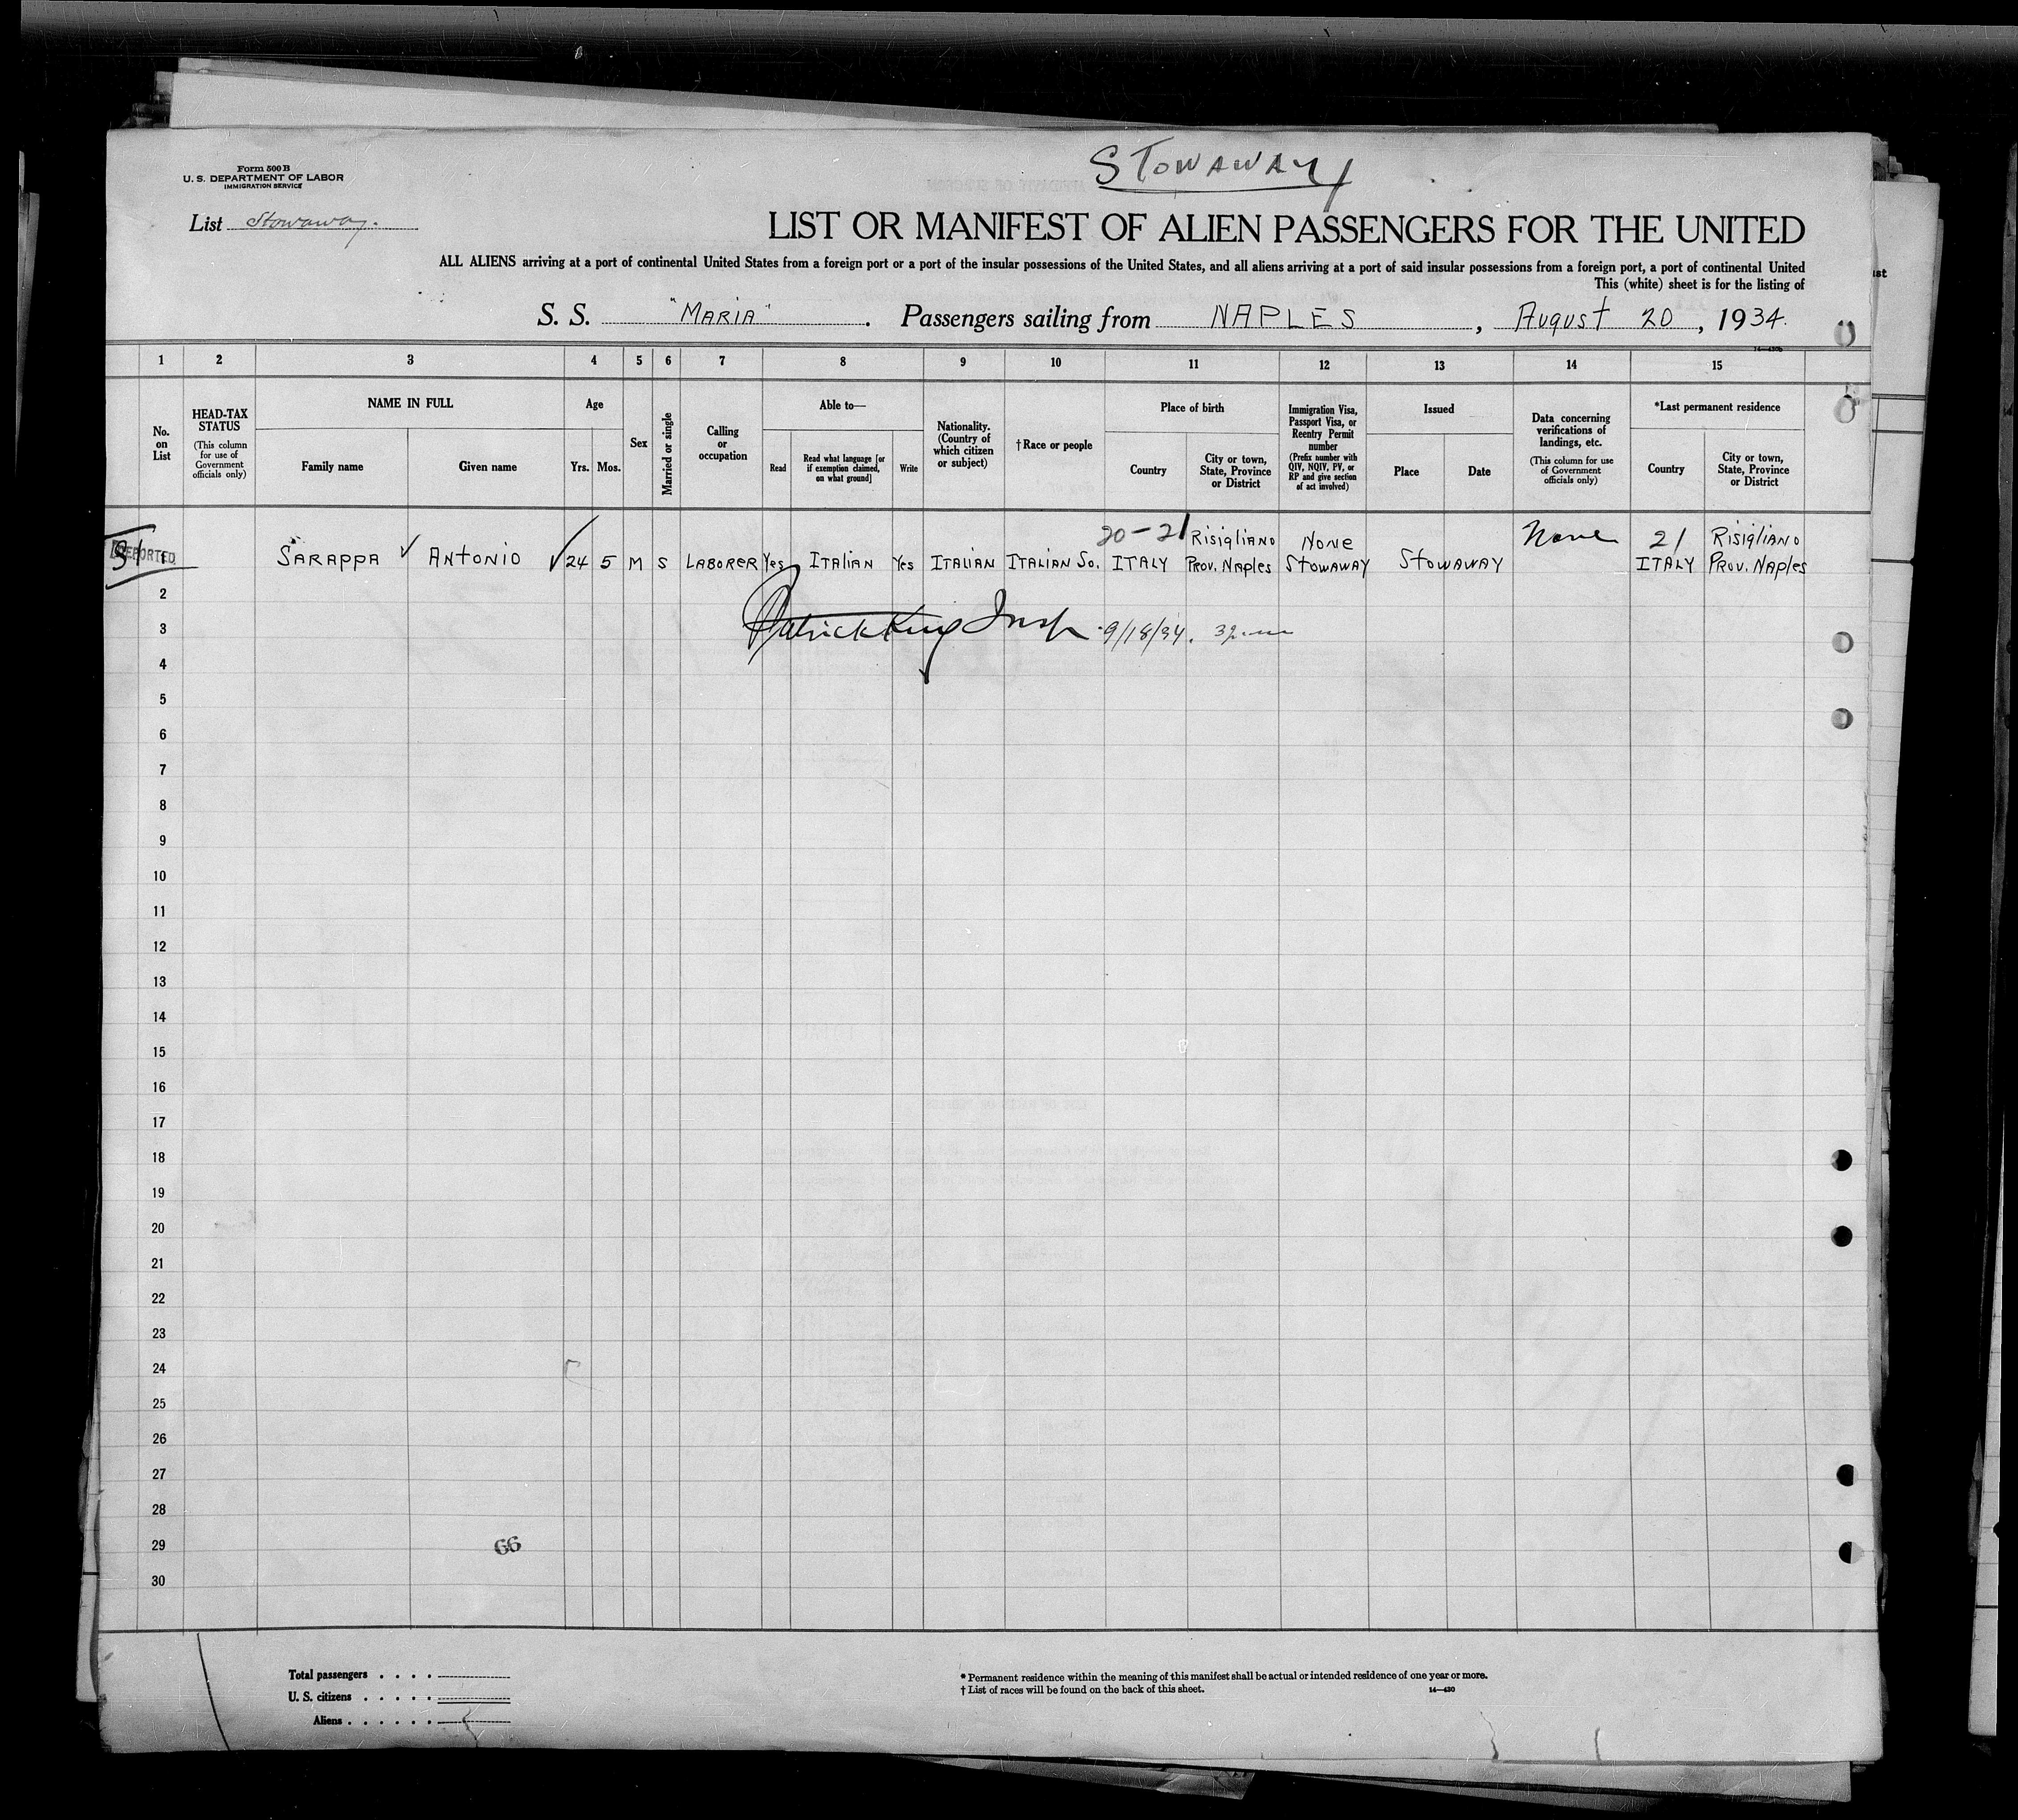 STOWAWAY
Form 500 B
U. S. DEPARTMENT OF LABOR
IMMIGRATION SERVICE
List Stowaway.
LIST OR MANIFEST OF ALIEN PASSENGERS FOR THE UNITED
ALL ALIENS arriving at a port of continental United States from a foreign port or a port of the insular possessions of the United States, and all aliens arriving at a port of said insular possessions from a foreign port, a port of continental United
This (white) sheet is for the listing of
S. S. "MARIA". Passengers sailing from NAPLES, August 20, 1934.
1 2 3 4 5 6 7 8 9 10 11 12 13 14 15
No. on List
HEAD-TAX STATUS
(This column for use of Government officials only)
NAME IN FULL
Family name
Given name
Age
Yrs. Mos.
Sex
Married or single
Calling or occupation
Able to—
Read
Read what language [or if exemption claimed, on what ground]
Write
Nationality. (Country of which citizen or subject)
†Race or people
Place of birth
Country
City or town, State, Province or District
Immigration Visa, Passport Visa, or Reentry Permit number
(Prefix number with QIV, NQIV, PV, or RP and give section of act involved)
Issued
Place
Date
Data concerning verifications of landings, etc.
(This column for use of Government officials only)
*Last permanent residence
Country
City or town, State, Province or District
20-21 RISIGLIANO NONE None 21 RISIGLIANO
1 SARAPPA ✓ ANTONIO ✓ 24 5 M S LABORER Yes ITALIAN Yes ITALIAN ITALIAN So. ITALY PROV. NAPLES STOWAWAY STOWAWAY ITALY PROV. NAPLES
DEPORTED
2
3 Patrick King Insp 9/18/34.
4
5
6
7
8
9
10
11
12
13
14
15
16
17
18
19
20
21
22
23
24
25
26
27
28
29
66
30
Total passengers . . . .
U. S. citizens . . . . .
Aliens . . . . . .
* Permanent residence within the meaning of this manifest shall be actual or intended residence of one year or more.
† List of races will be found on the back of this sheet.
14—430